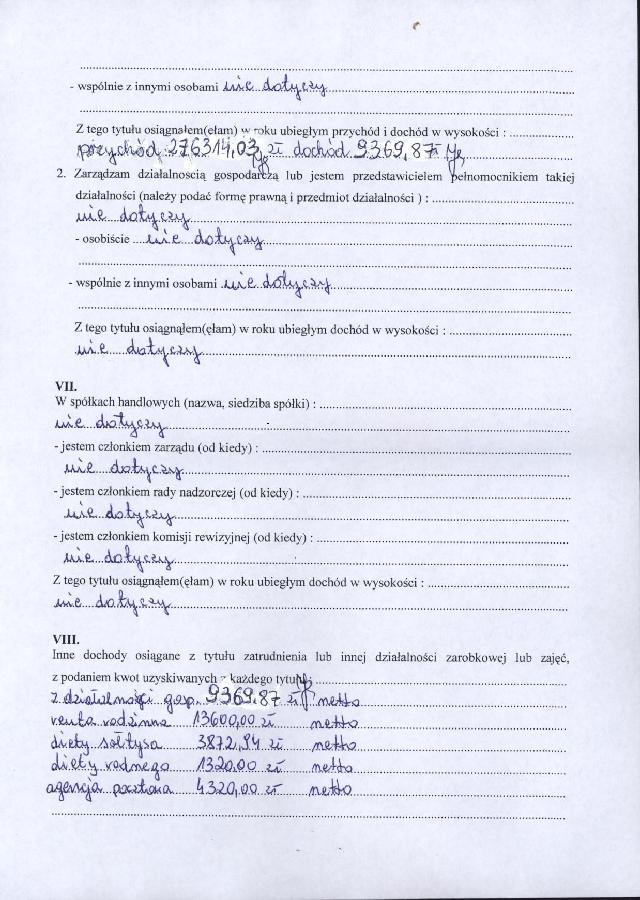 - wspólnie z innymi osobami nie dotyczy
Z tego tytułu osiągnąłem(ęłam) w roku ubiegłym przychód i dochód w wysokości :
przychód 276314,03 zł dochód 9369,87 zł
2. Zarządzam działalnością gospodarczą lub jestem przedstawicielem pełnomocnikiem takiej
działalności (należy podać formę prawną i przedmiot działalności ) :
nie dotyczy
- osobiście nie dotyczy
- wspólnie z innymi osobami nie dotyczy
Z tego tytułu osiągnąłem(ęłam) w roku ubiegłym dochód w wysokości :
nie dotyczy
VII.
W spółkach handlowych (nazwa, siedziba spółki) :
nie dotyczy
- jestem członkiem zarządu (od kiedy) :
nie dotyczy
- jestem członkiem rady nadzorczej (od kiedy) :
nie dotyczy
- jestem członkiem komisji rewizyjnej (od kiedy) :
nie dotyczy
Z tego tytułu osiągnąłem(ęłam) w roku ubiegłym dochód w wysokości :
nie dotyczy
VIII.
Inne dochody osiągane z tytułu zatrudnienia lub innej działalności zarobkowej lub zajęć,
z podaniem kwot uzyskiwanych z każdego tytułu
z działalności gosp. 9369,87 zł netto
renta rodzinna 13600,00 zł netto
diety sołtysa 3872,94 zł netto
diety radnego 1320,00 zł netto
agencja pocztowa 4320,00 zł netto